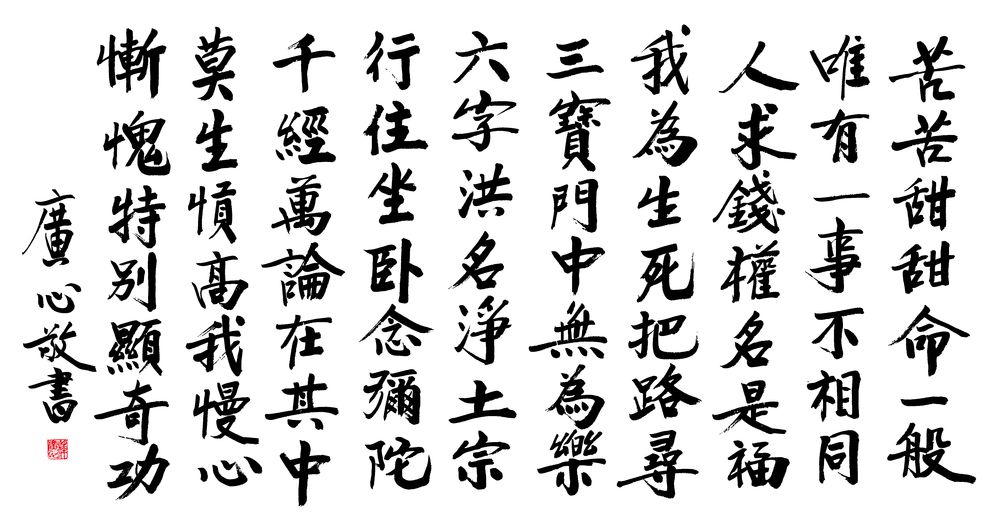 苦苦甜甜命一般
唯有一事不相同
人求錢權名是福
我為生死把路尋
三寶門中無為樂
六字洪名淨土宗
行住坐卧念彌陀
千經萬論在其中
莫生嗔高我慢心
慚愧特別顯奇功
廣心敬書